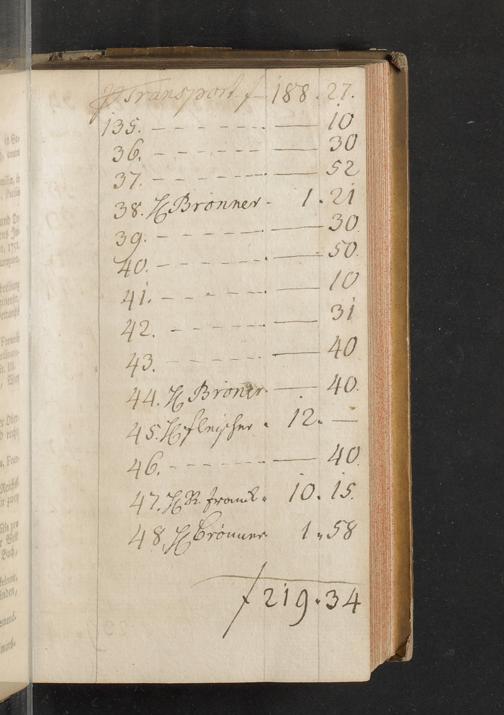 Transport f 188.27.
135. - - - - - - - — 10
36. - - - - - - - — 30
37. - - - - - - - — 52
38. H Bronner - 1.21
39. - - - - - - - — 30
40. - - - - - - - — 50.
41. - - - - - - - — 10
42. - - - - - - - — 31
43. - - - - - - - — 40
44. H Broner — 40.
45. H fleischer. 12. —
46. - - - - - - - — 40.
47. H R. franck. 10.15.
48. H Brönner 1.58
f 219.34